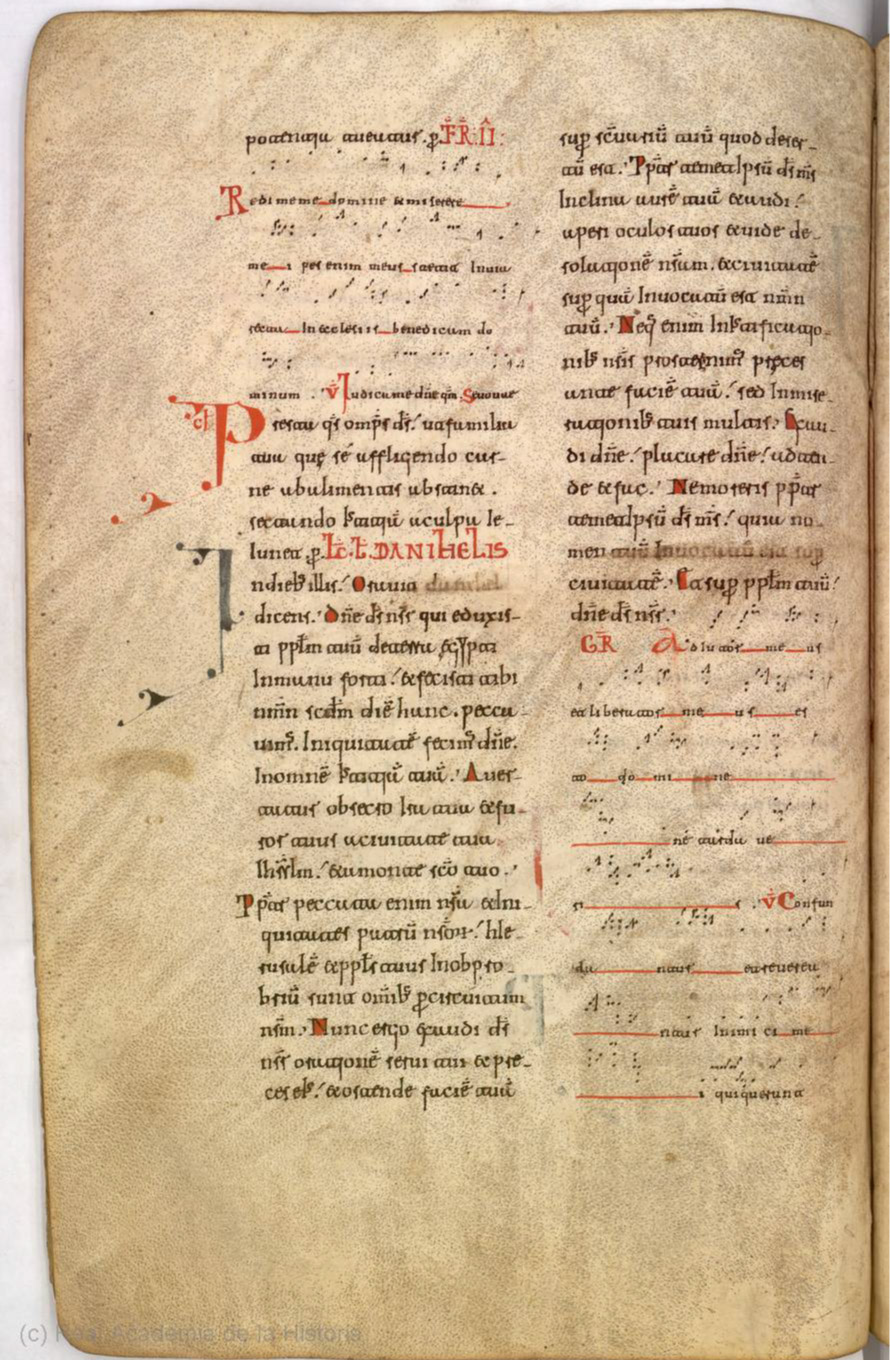 potentaju aueuatur. ꝑ. FR̃. II:
Redime me domine & miserere
me i pes enim meus stetit In uia
recta In ecclesiis benedicam do
minum . V̄ Iudica me dñe qm̄. Seuouae
Presta q̄s omp̄s d̄s. ut familia
tua que sé affligendo car-
ne ab alimentis abstin&.
sectando Iusticiā a culpa Ie-
Iunet ꝑ. Lc̄. L. DANIHELIS
In dieb; illis. Orauit daniel
dicens. Dñe d̄s nr̄ qui eduxis-
ti ppl̄m tuū de terra egypti
In manu forti. & fecisti tibi
nom̄n scdm̄ diē hunc. pecca-
uim;. Iniquitatē fecim; dñe.
In omnē Iusticiā tuā. Auer-
tatur obsecro Ira tua & fu-
ror tuus a ciuitate tua
Ihrlm̄. & a monte sc̄o tuo.
Ppter peccata enim nr̄a & Ini-
quitates patrū nr̄or. Hie-
rusalē & ppl̄s tuus In obpro-
briū sunt omīb; ꝑ circuitum
nr̄m. Nunc ergo exaudi d̄s
nr̄ orationē serui tui & pre-
ces ei;. & ostende faciē tuā
sup sc̄uariū tuū quod deser-
tū est. Ppter temetipsū d̄s m̄s
Inclina aurē tuā & audi.
aperi oculos tuos & uide de-
solationē nr̄am. & ciuitatē
sup quā Inuocatū est nom̄n
tuū. Neq; enim In Iustificatio-
nib; nr̄is prosternim; preces
ante faciē tuā. sed In mise-
rationib; tuis multis. Exau-
di dñe. placare dñe. adten-
de & fac. Ne moreris ppter
temetipsū d̄s m̄s. quia no-
men tuū Inuocatū est sup
ciuitatē. Et sup ppl̄m tuū.
dñe d̄s nr̄.
GR̄ Adiutor me us
et liberator me us es
to do mi ne
ne tarda ue
ris . V̄ Confun
da ntur et reuerea
ntur Inimi ci me
i qui querunt
(c) Real Academia de la Historia